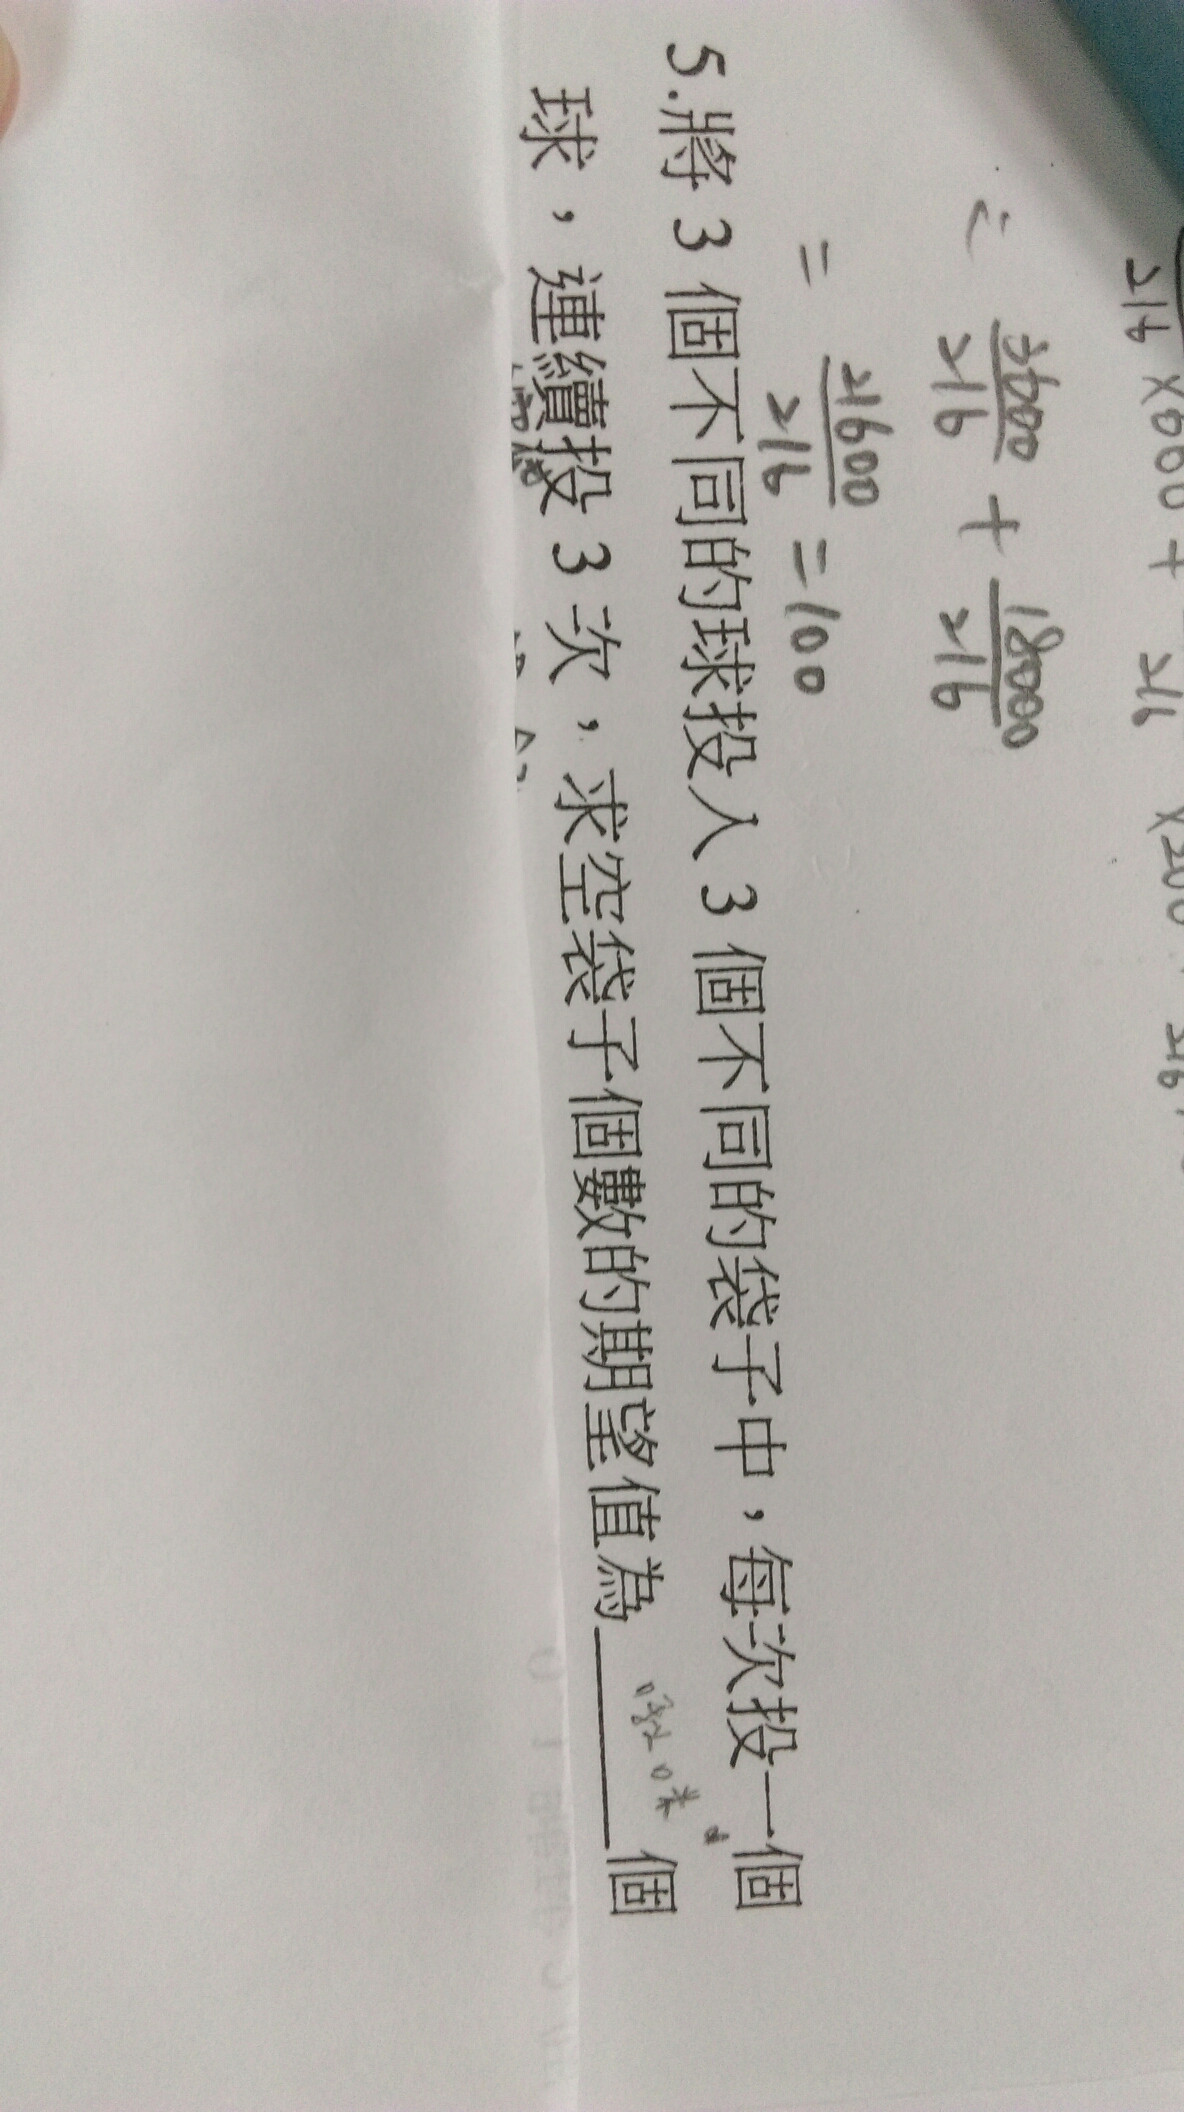 216 ×600 + 216 ×200 + 216
= 3600/216 + 18000/216
= 21600/216 = 100
5.將 3 個不同的球投入 3 個不同的袋子中，每次投一個
球，連續投 3 次，求空袋子個數的期望值為______個